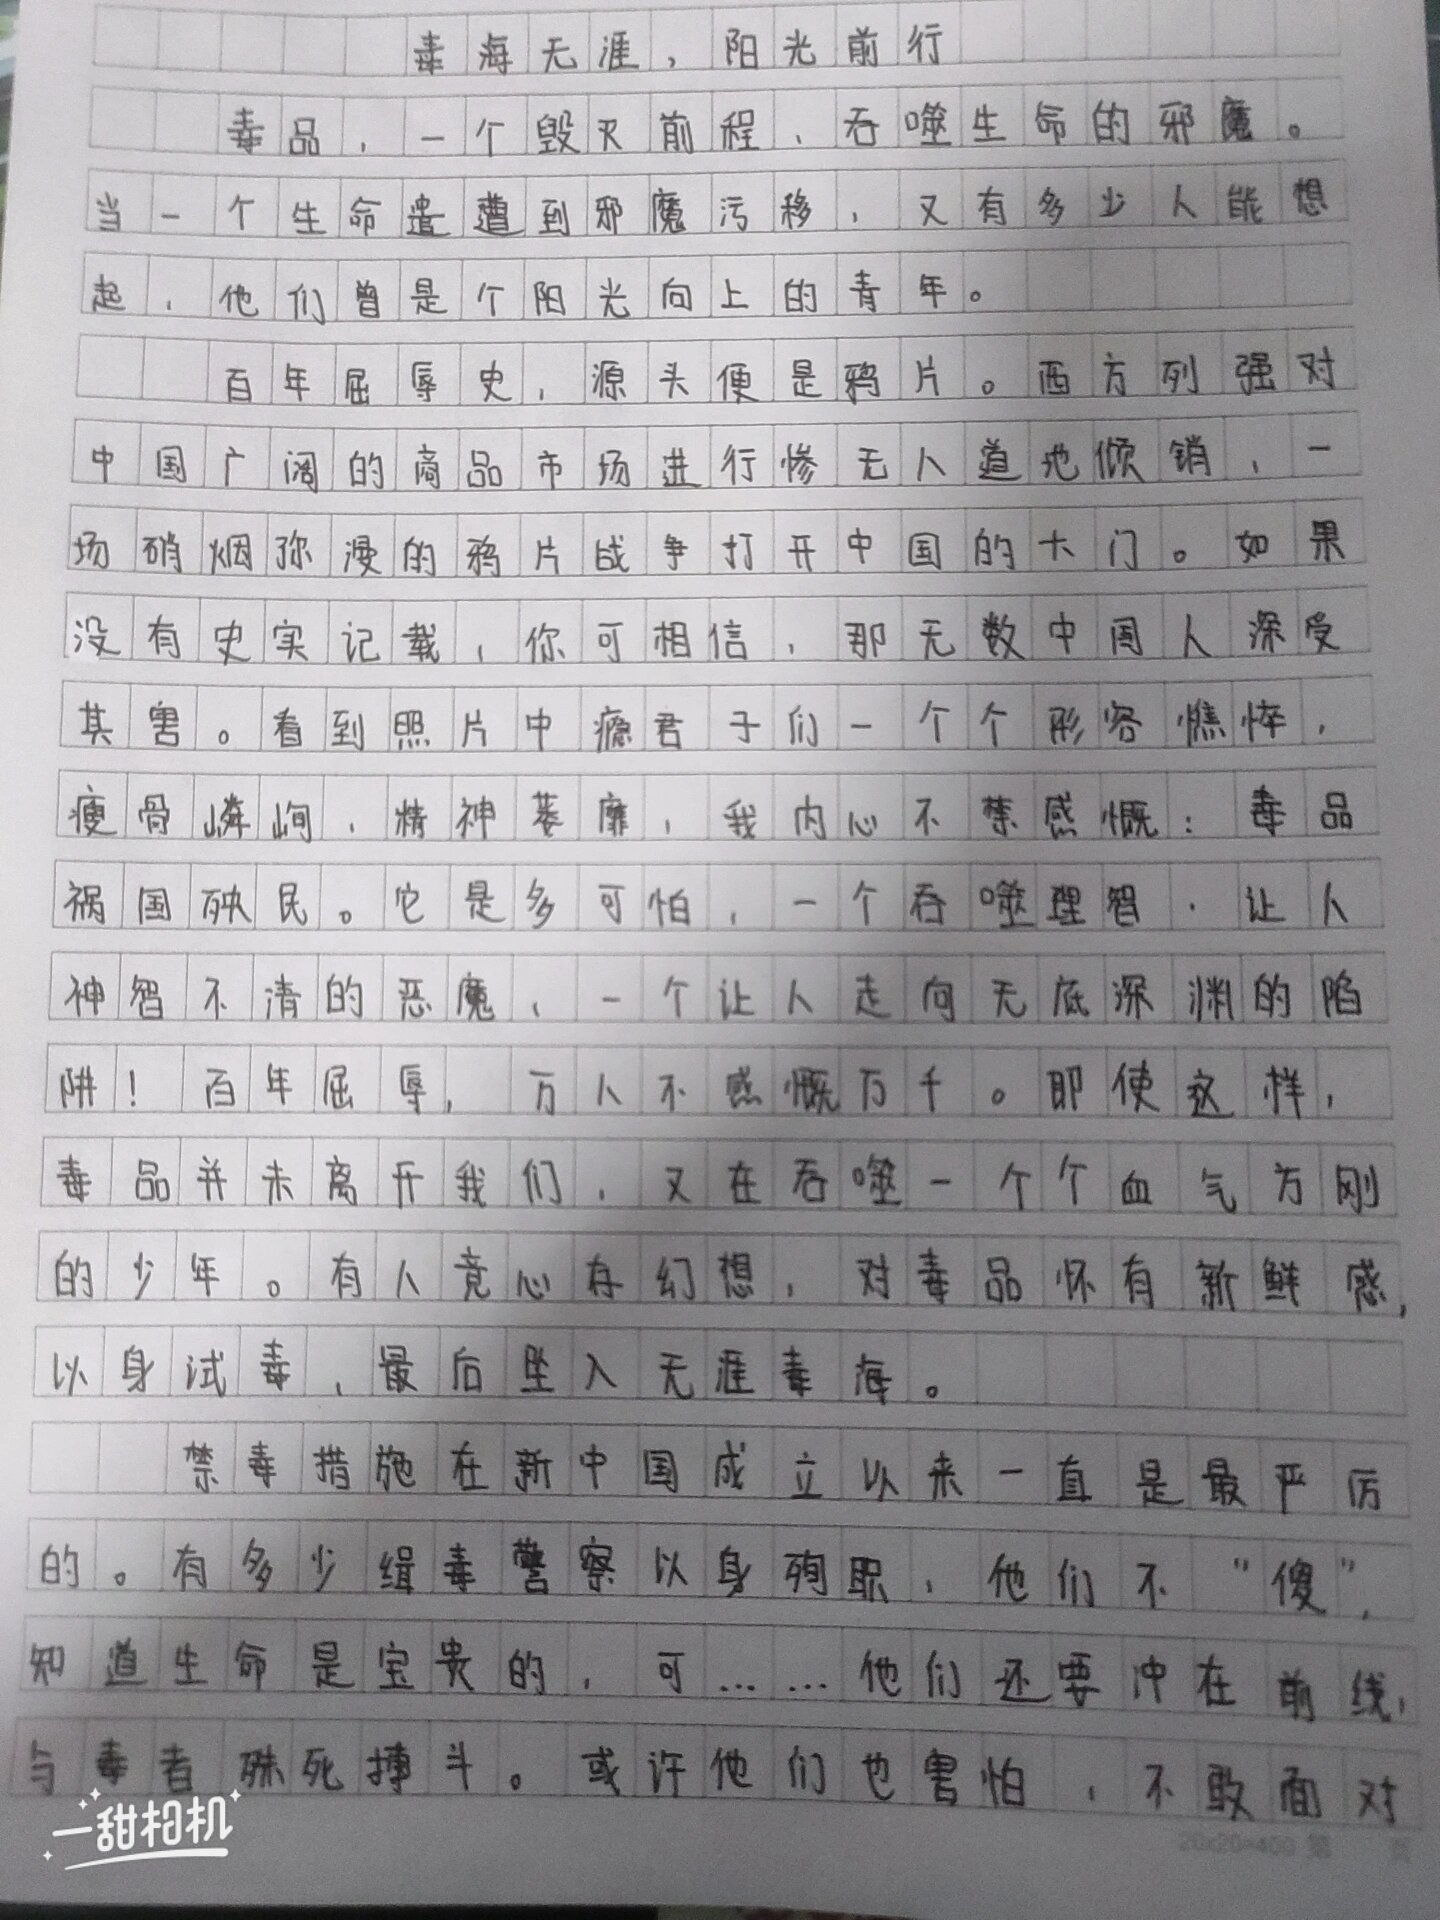 毒海无涯，阳光前行
毒品，一个毁灭前程、吞噬生命的邪魔。
当一个生命遭到邪魔污移，又有多少人能想
起，他们曾是个阳光向上的青年。
百年屈辱史，源头便是鸦片。西方列强对
中国广阔的商品市场进行惨无人道地倾销，一
场硝烟弥漫的鸦片战争打开中国的大门。如果
没有史实记载，你可相信，那无数中国人深受
其害。看到照片中瘾君子们一个个形容憔悴，
瘦骨嶙峋，精神萎靡，我内心不禁感慨：毒品
祸国殃民。它是多可怕，一个吞噬理智、让人
神智不清的恶魔，一个让人走向无底深渊的陷
阱！百年屈辱，万人不感慨万千。即使这样，
毒品并未离开我们，又在吞噬一个个血气方刚
的少年。有人竟心存幻想，对毒品怀有新鲜感，
以身试毒，最后坠入无涯毒海。
禁毒措施在新中国成立以来一直是最严厉
的。有多少缉毒警察以身殉职，他们不“傻”，
知道生命是宝贵的，可……他们还要冲在前线，
与毒者殊死搏斗。或许他们也害怕，不敢面对
20x20=400 第 页
一甜相机